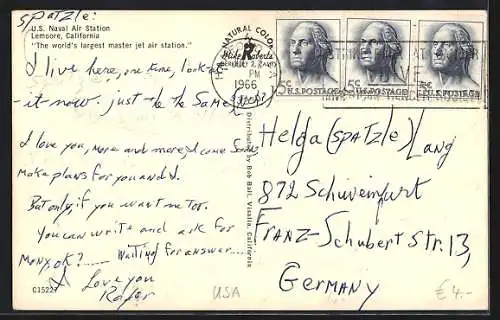 Spatzle:
U.S. Naval Air Station
Lemoore, California
"The world's largest master jet air station."
I live here, one time, look at
it now. just to be the Same!
I love you, more and more, come Some
make plans for you and I.
But only, if you want me too.
You can write and ask for
ok? Waiting for answer.....
I Love you
C15227
NATURAL COLOR
Mike Roberts
PM
1966
Distributed by Bob Ball, Visalia, California
5¢ U.S. POSTAGE
5¢ U.S. POSTAGE
5¢ U.S. POSTAGE
Helga (SPATZLE) Lang
872 Schweinfurt
FRANZ-Schubert Str. 13,
Germany
USA
€ 4.-